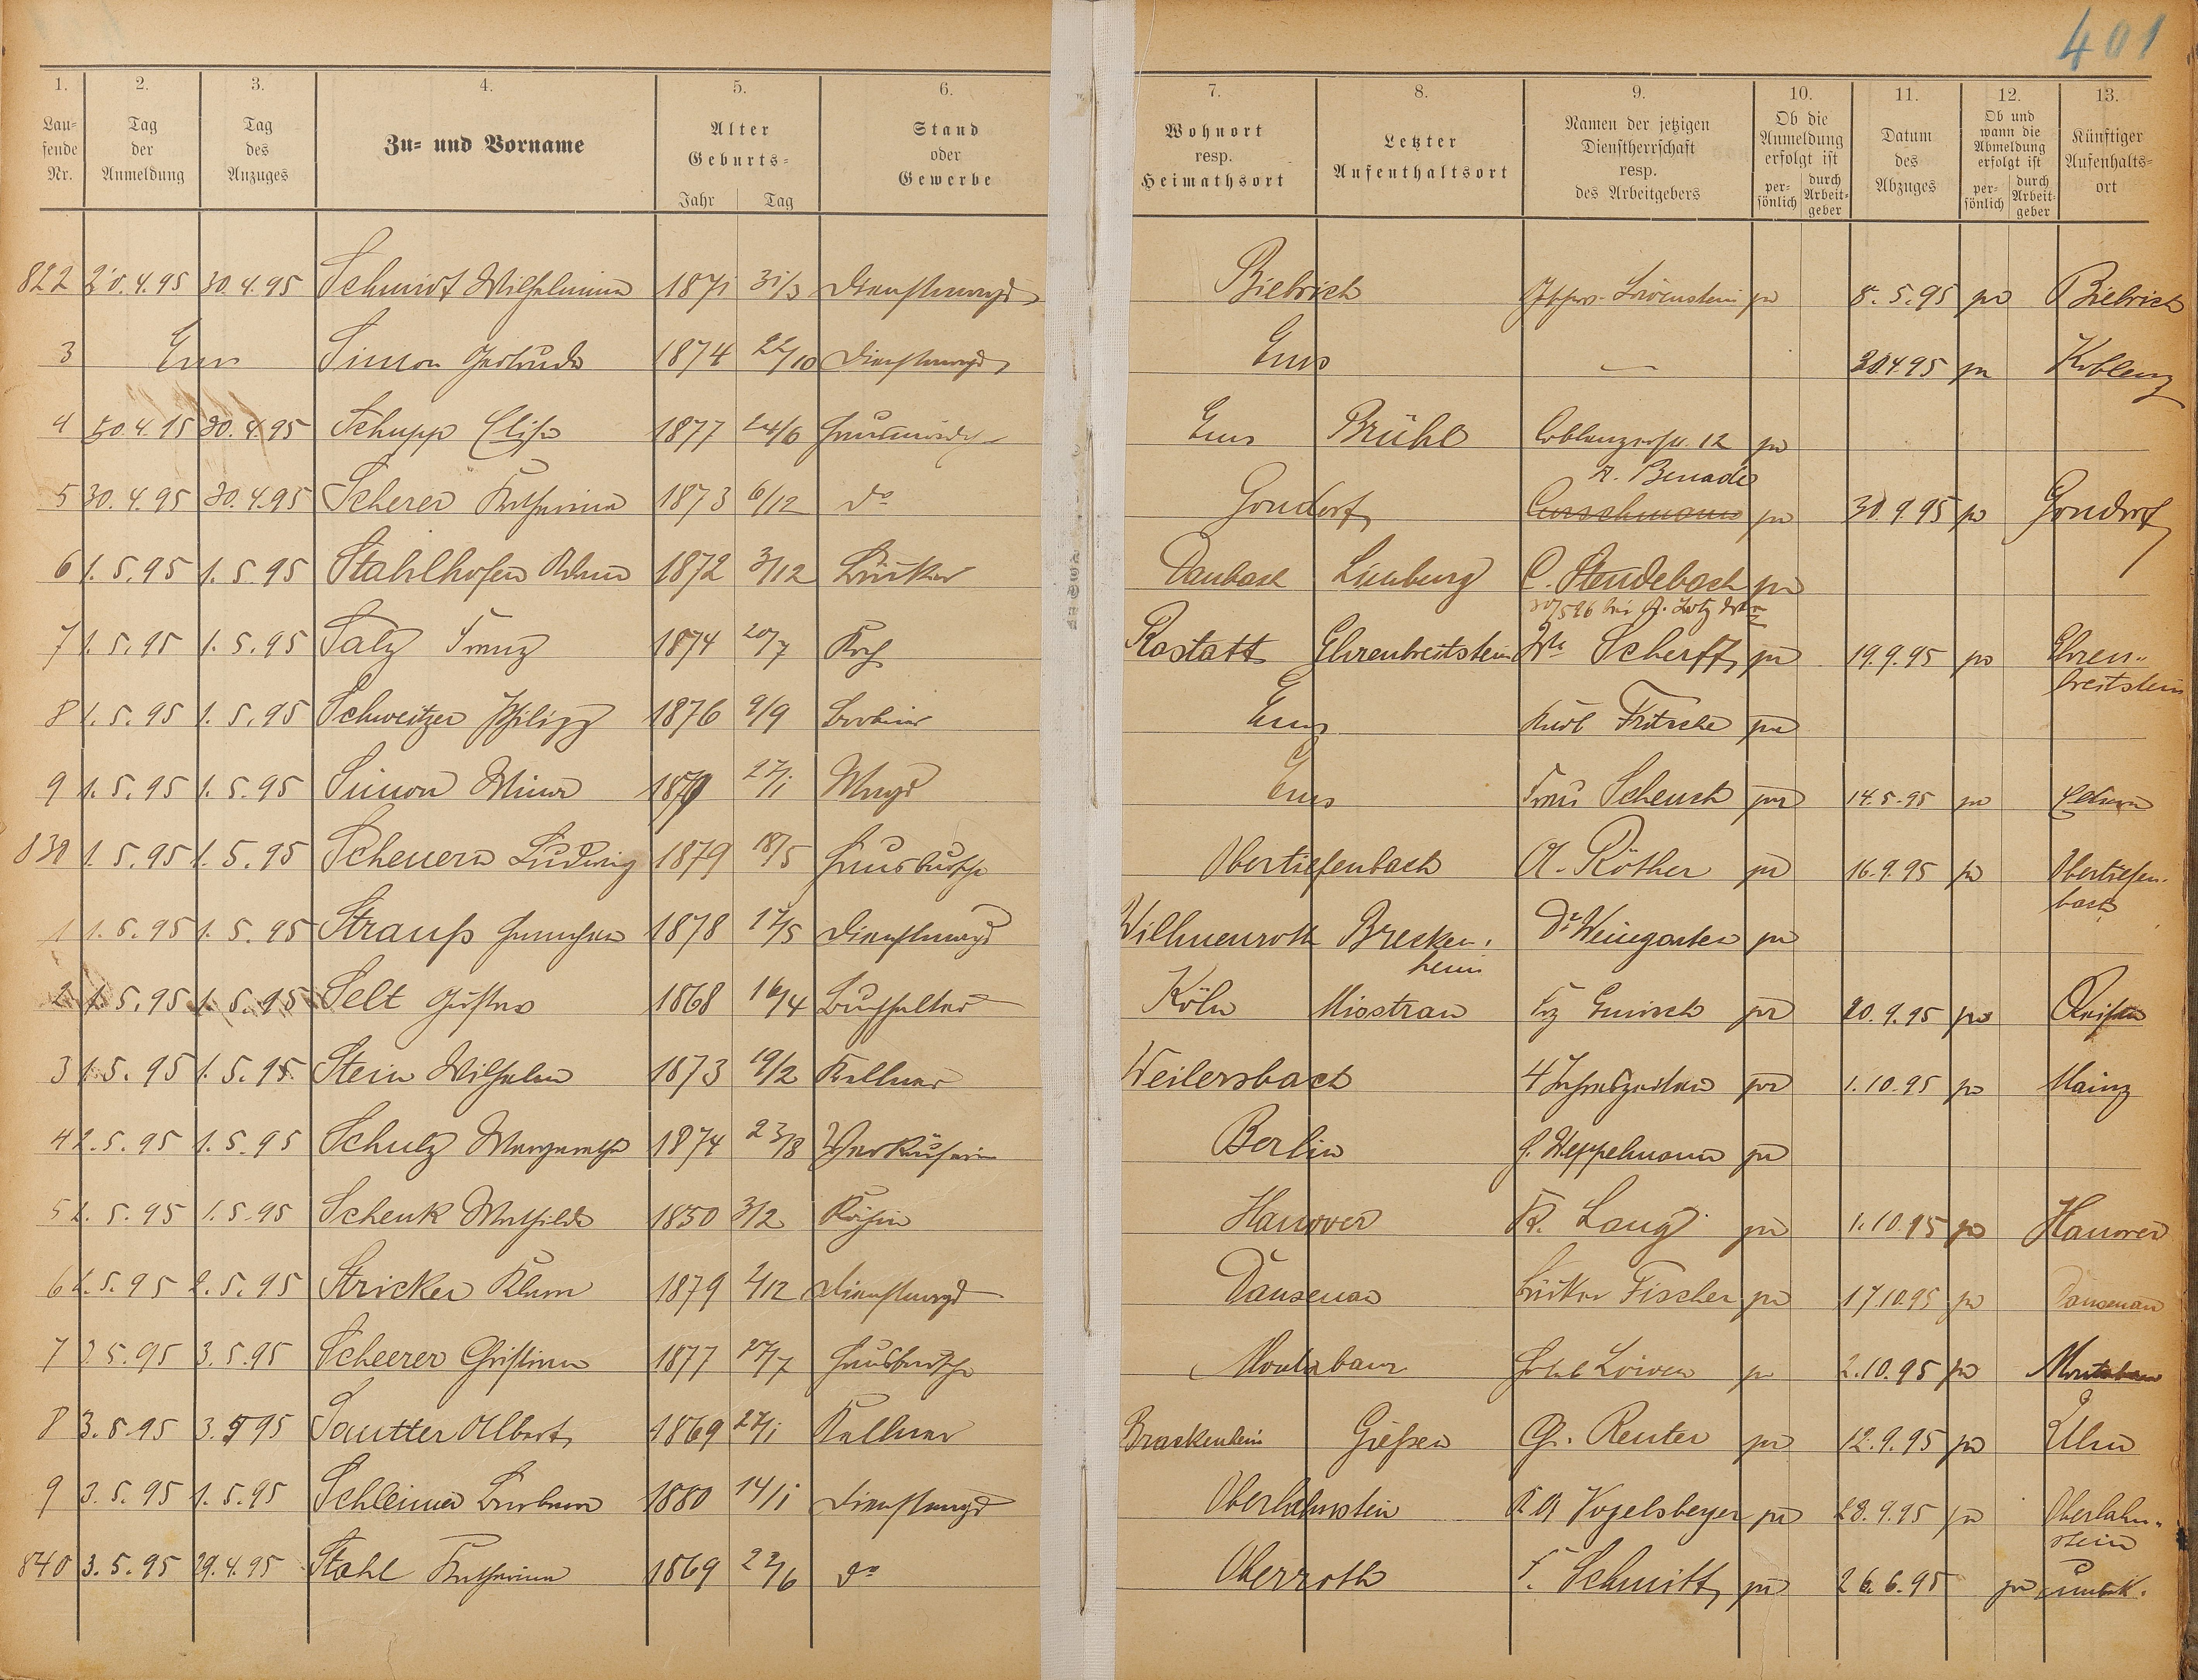 401
1. 2. 3. 4. 5. 6. 7. 8. 9. 10. 11. 12. 13.
Lau=
fende
Nr.
Tag
der
Anmeldung
Tag
des
Anzuges
Zu= und Vorname
Alter
Geburts=
Jahr Tag
Stand
oder
Gewerbe
Wohnort
resp.
Heimathsort
Letzter
Aufenthaltsort
Namen der jetzigen
Dienstherrschaft
resp.
des Arbeitgebers
Ob die
Anmeldung
erfolgt ist
per=
sönlich
durch
Arbeit=
geber
Datum
des
Abzuges
Ob und
wann die
Abmeldung
erfolgt ist
per=
sönlich
durch
Arbeit=
geber
Künftiger
Aufenhalts=
ort
822 30.4.95 Schmidt Wilhelmine 1871 31/3 Dienstmagd Biebrich Löwenstein pr 8.5.95 pr Biebrich
3 Ems Simon Gertrude 1874 22/10 Dienstmagd Ems — 30.4.95 pr Koblenz
4 30.4.95 Schupp Elise 1877 24/6 Ems Brühl Coblenzerstr. 12 pr
5 30.4.95 30.4.95 Scherer Katharina 1873 6/12 do Gondorf R. Benade pr 30.9.95 pr Gondorf
6 1.5.95 1.5.95 Stahlhofen Adam 1872 3/12 Bäcker Daubach Limburg C. Steudebach pr
7 1.5.95 1.5.95 Salz Franz 1874 20/7 Koch Rastatt Ehrenbreitstein Ww Scherff pr 19.9.95 pr Ehren=
breitstein
8 1.5.95 1.5.95 Schweitzer Philipp 1876 9/9 Barbier Ems Rud. Fritsche pr
9 1.5.95 1.5.95 Simon Mina 1879 27/1 Magd Ems Frau Scheuch pr 14.5.95 pr
830 1.5.95 1.5.95 Scheuern Ludwig 1879 18/5 Hausbursche Obertiefenbach A. Röther pr 16.9.95 pr Obertiefen=
bach
1 1.5.95 1.5.95 Strauß 1878 17/5 Dienstmagd Willmenroth Brecken=
heim
Dr Weingarten pr
2 1.5.95 1.5.95 Selt Gustav 1868 16/4 Buchhalter Köln Misstrau pr 20.9.95 pr Reisen
3 1.5.95 1.5.95 Stein Wilhelm 1873 19/2 Kellner Weilersbach 4 Jahreszeiten pr 1.10.95 pr Mainz
4 2.5.95 1.5.95 Schulz Margarethe 1874 23/8 Verkäuferin Berlin J. Weppelmann pr
5 2.5.95 1.5.95 Schenk Mathilde 1850 3/2 Köchin Hanover Fr. Lang pr 1.10.95 pr Hanover
6 2.5.95 2.5.95 Stricker Klara 1879 Dienstmagd Dausenau Bäcker Fischer pr 17.10.95 pr Dausenau
7 3.5.95 3.5.95 Scheerer Christian 1877 27/7 Hausbursche Montabaur Hotel Löwen pr 2.10.95 pr Montabaur
8 3.5.95 3.5.95 Sautter Albert 1869 27/1 Kellner Brackenheim Gießen Gr. Reuter pr 12.9.95 pr Ulm
9 3.5.95 1.5.95 Schleimer Barbara 1880 14/1 Dienstmagd Oberlahnstein Vogelsberger pr 23.9.95 pr Oberlahn=
stein
840 3.5.95 29.4.95 Stahl Katharina 1869 22/6 do Oberroth F. Schmitt pr 26.6.95 pr unbek.